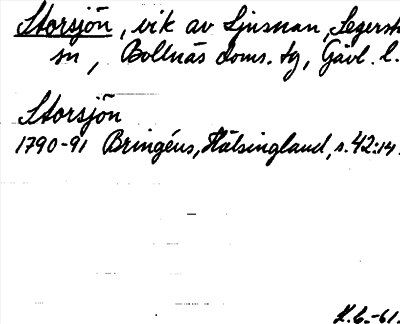 Storsjön, vik av Ljusnan, Segersta
sn, Bollnäs doms. tg, Gävl. l.
Storsjön
1790-91 Bringéus, Hälsingland, s. 42:14.
H.C.-61.